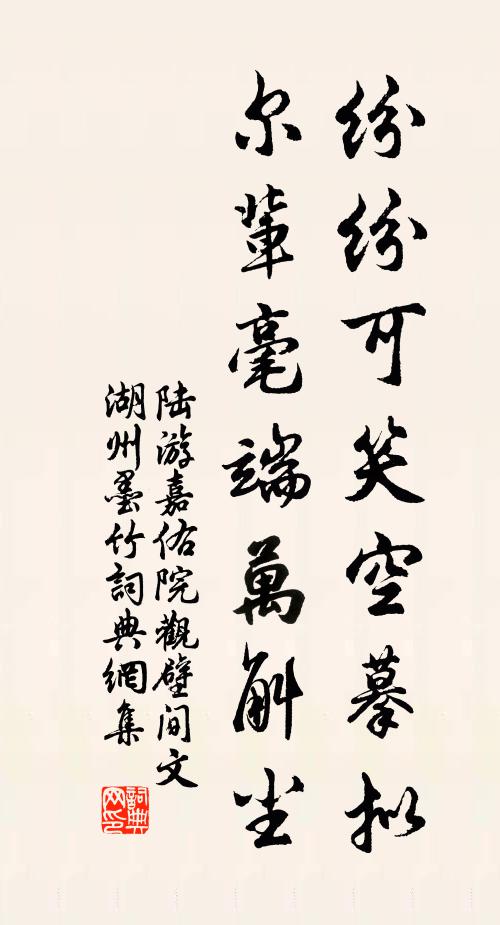 纷纷可笑空摹拟
尔輩毫端萬斛尘
陆游嘉佑院觀壁间文
湖州墨竹詞典網集
詞典网印